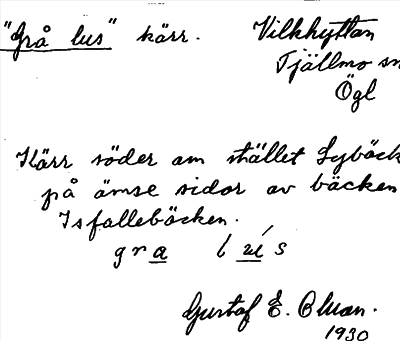 "Grå lus" kärr. Vilkhyttan
Tjällmo sn
Ögl
Kärr söder om stället Lybäck
på ömse sidor av bäcken
Isfallebäcken.
gra lus
Gustaf E. Oluan.
1930